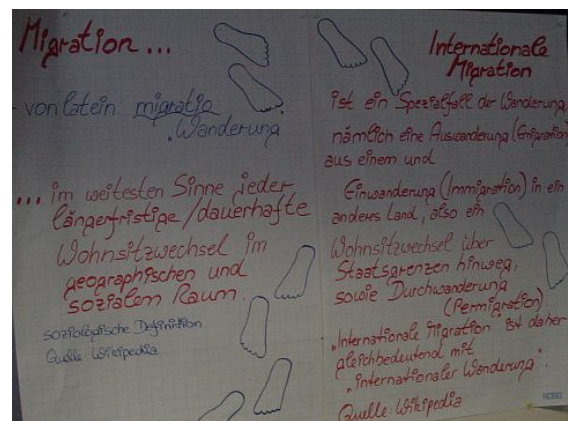 Migration...
- von latein. migratio
"Wanderung
... im weitesten Sinne jeder
längerfristige/dauerhafte
Wohnsitzwechsel im
geographischen und
sozialem Raum.
soziologische Definition
Quelle Wikipedia
Internationale
Migration
ist ein Spezialfall der Wanderung,
nämlich eine Auswanderung (Emigration)
aus einem und
Einwanderung (Immigration) in ein
anderes Land, also ein
Wohnsitzwechsel über
Staatsgrenzen hinweg,
sowie Durchwanderung
(Permigration).
"Internationale Migration" ist daher
gleichbedeutend mit
"internationaler Wanderung".
Quelle: Wikipedia